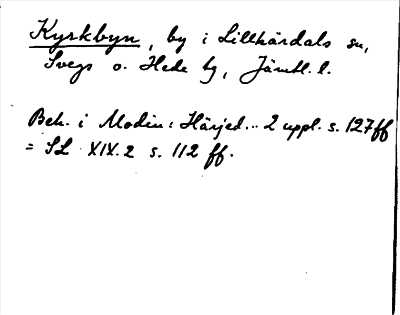 Kyrkbyn, by i Lillhärdals sn,
Svegs o. Hede tg, Jämtl. l.
Beh. i Modin: Härjed... 2 uppl. s. 127 ff
= SL XIX. 2 s. 112 ff.